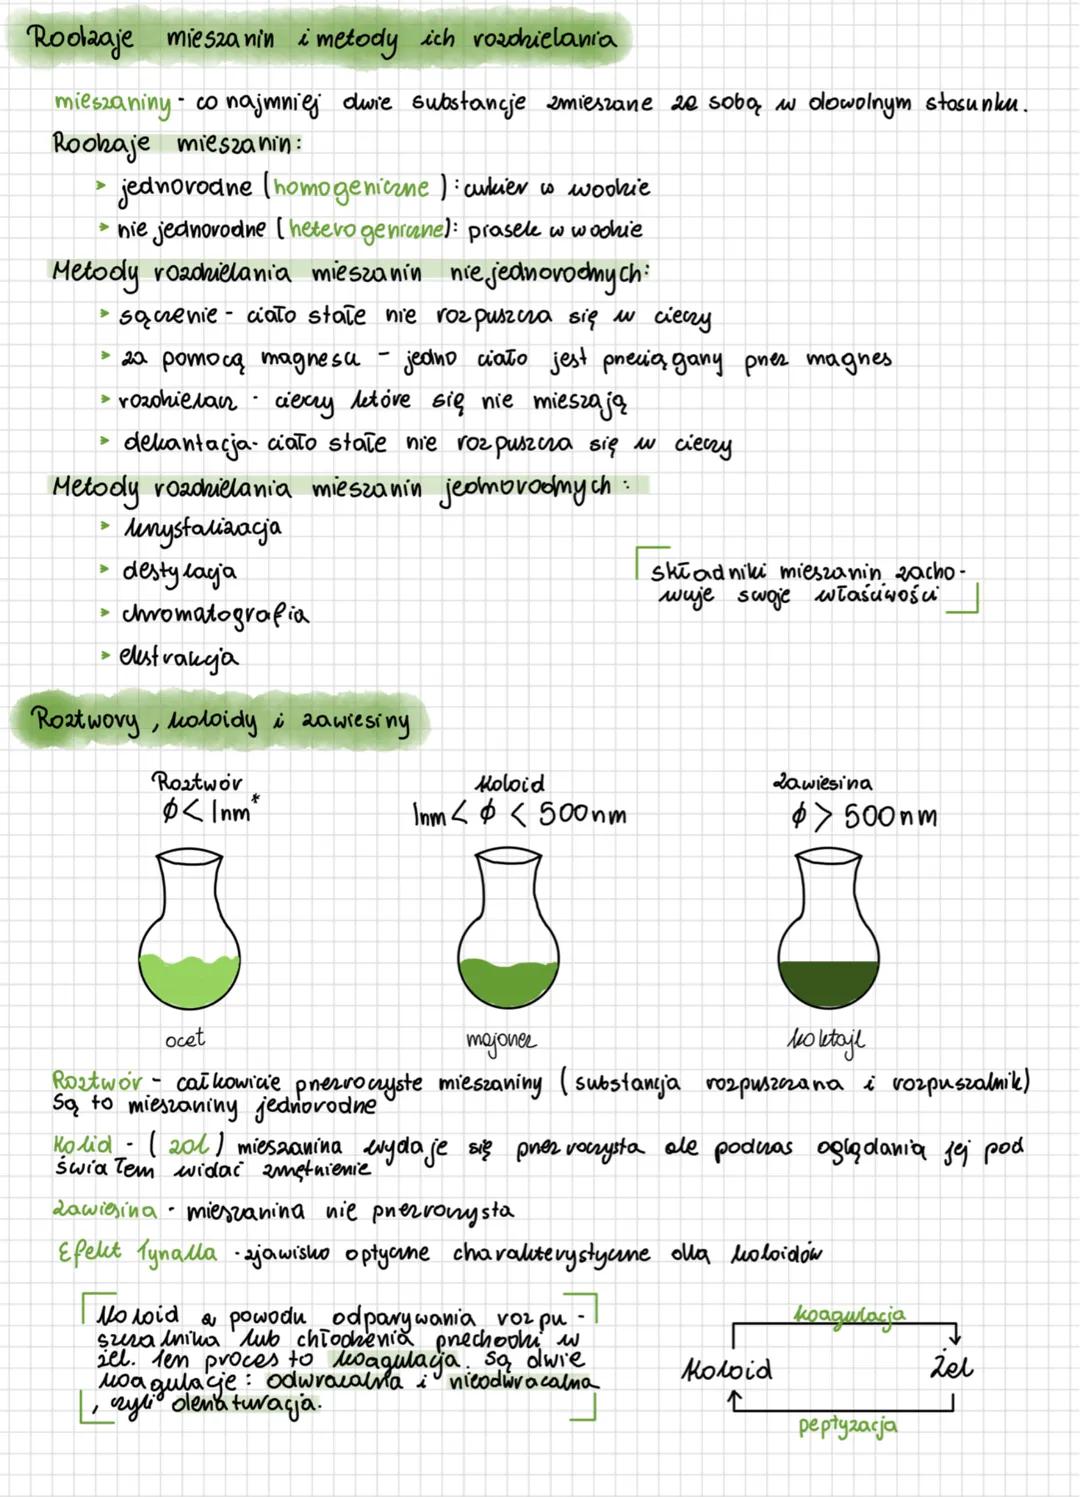 Rodzaje mieszanin i metody ich rozdzielania
mieszaniny - co najmniej dwie substancje zmieszane ze sobą w dowolnym stosunku.
Rodzaje mieszanin:
> jednorodne (homogeniczne): cukier w wodzie
> nie jednorodne (heterogeniczne): piasek w wodzie
Metody rozdzielania mieszanin niejednorodnych:
> sączenie - ciało stałe nie rozpuszcza się w cieczy
> za pomocą magnesu - jedno ciało jest przeciągany przez magnes
> rozdzielacz - cieczy które się nie mieszają
> dekantacja - ciało stałe nie rozpuszcza się w cieczy
Metody rozdzielania mieszanin jednorodnych:
> krystalizacja
> destylacja
> chromatografia
> ekstrakcja
składniki mieszanin zacho-
wuje swoje właściwości
Roztwory, koloidy i zawiesiny
Roztwór
ϕ < 1nm*
Koloid
1nm < ϕ < 500nm
Zawiesina
ϕ > 500nm
ocet
majonez
koktajl
Roztwór - całkowicie przezroczyste mieszaniny (substancja rozpuszczana i rozpuszalnik)
Są to mieszaniny jednorodne
Kolid - (zol) mieszanina wydaje się przezroczysta ale podczas oglądania jej pod
światłem widać zmętnienie
Zawiesina - mieszanina nie przezroczysta
Efekt Tynalla - zjawisko optyczne charakterystyczne dla koloidów
Koloid z powodu odparywania rozpu-
szczalnika lub chłodzenia przechodzi w
żel. Ten proces to koagulacja. Są dwie
koagulacje: odwracalna i nieodwracalna
, czyli denaturacja.
koagulacja
Koloid
Żel
peptyzacja